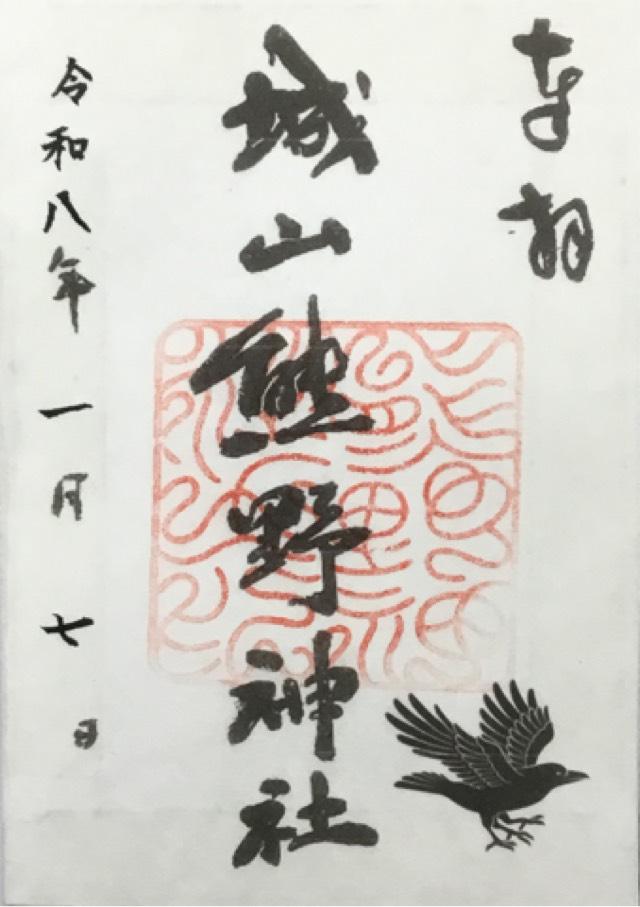 奉拝
城山熊野神社
令和八年一月七日